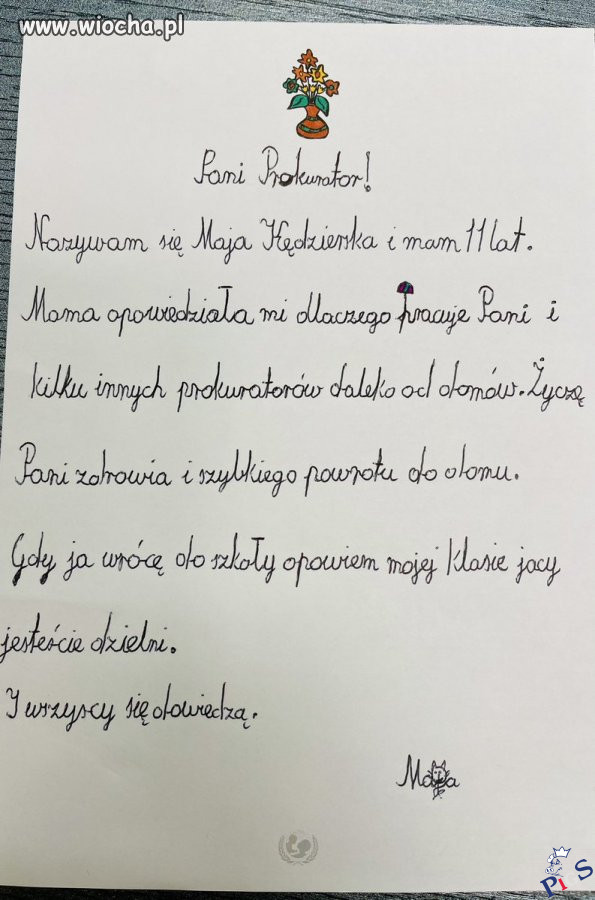 www.wiocha.pl
Pani Prokurator!
Nazywam się Maja Kędzierska i mam 11 lat.
Mama opowiedziała mi dlaczego pracuje Pani i
kilku innych prokuratorów daleko od domów. Życzę
Pani zdrowia i szybkiego powrotu do domu.
Gdy ja wrócę do szkoły opowiem mojej klasie jacy
jesteście dzielni.
I wszyscy się dowiedzą.
Maja
PiS